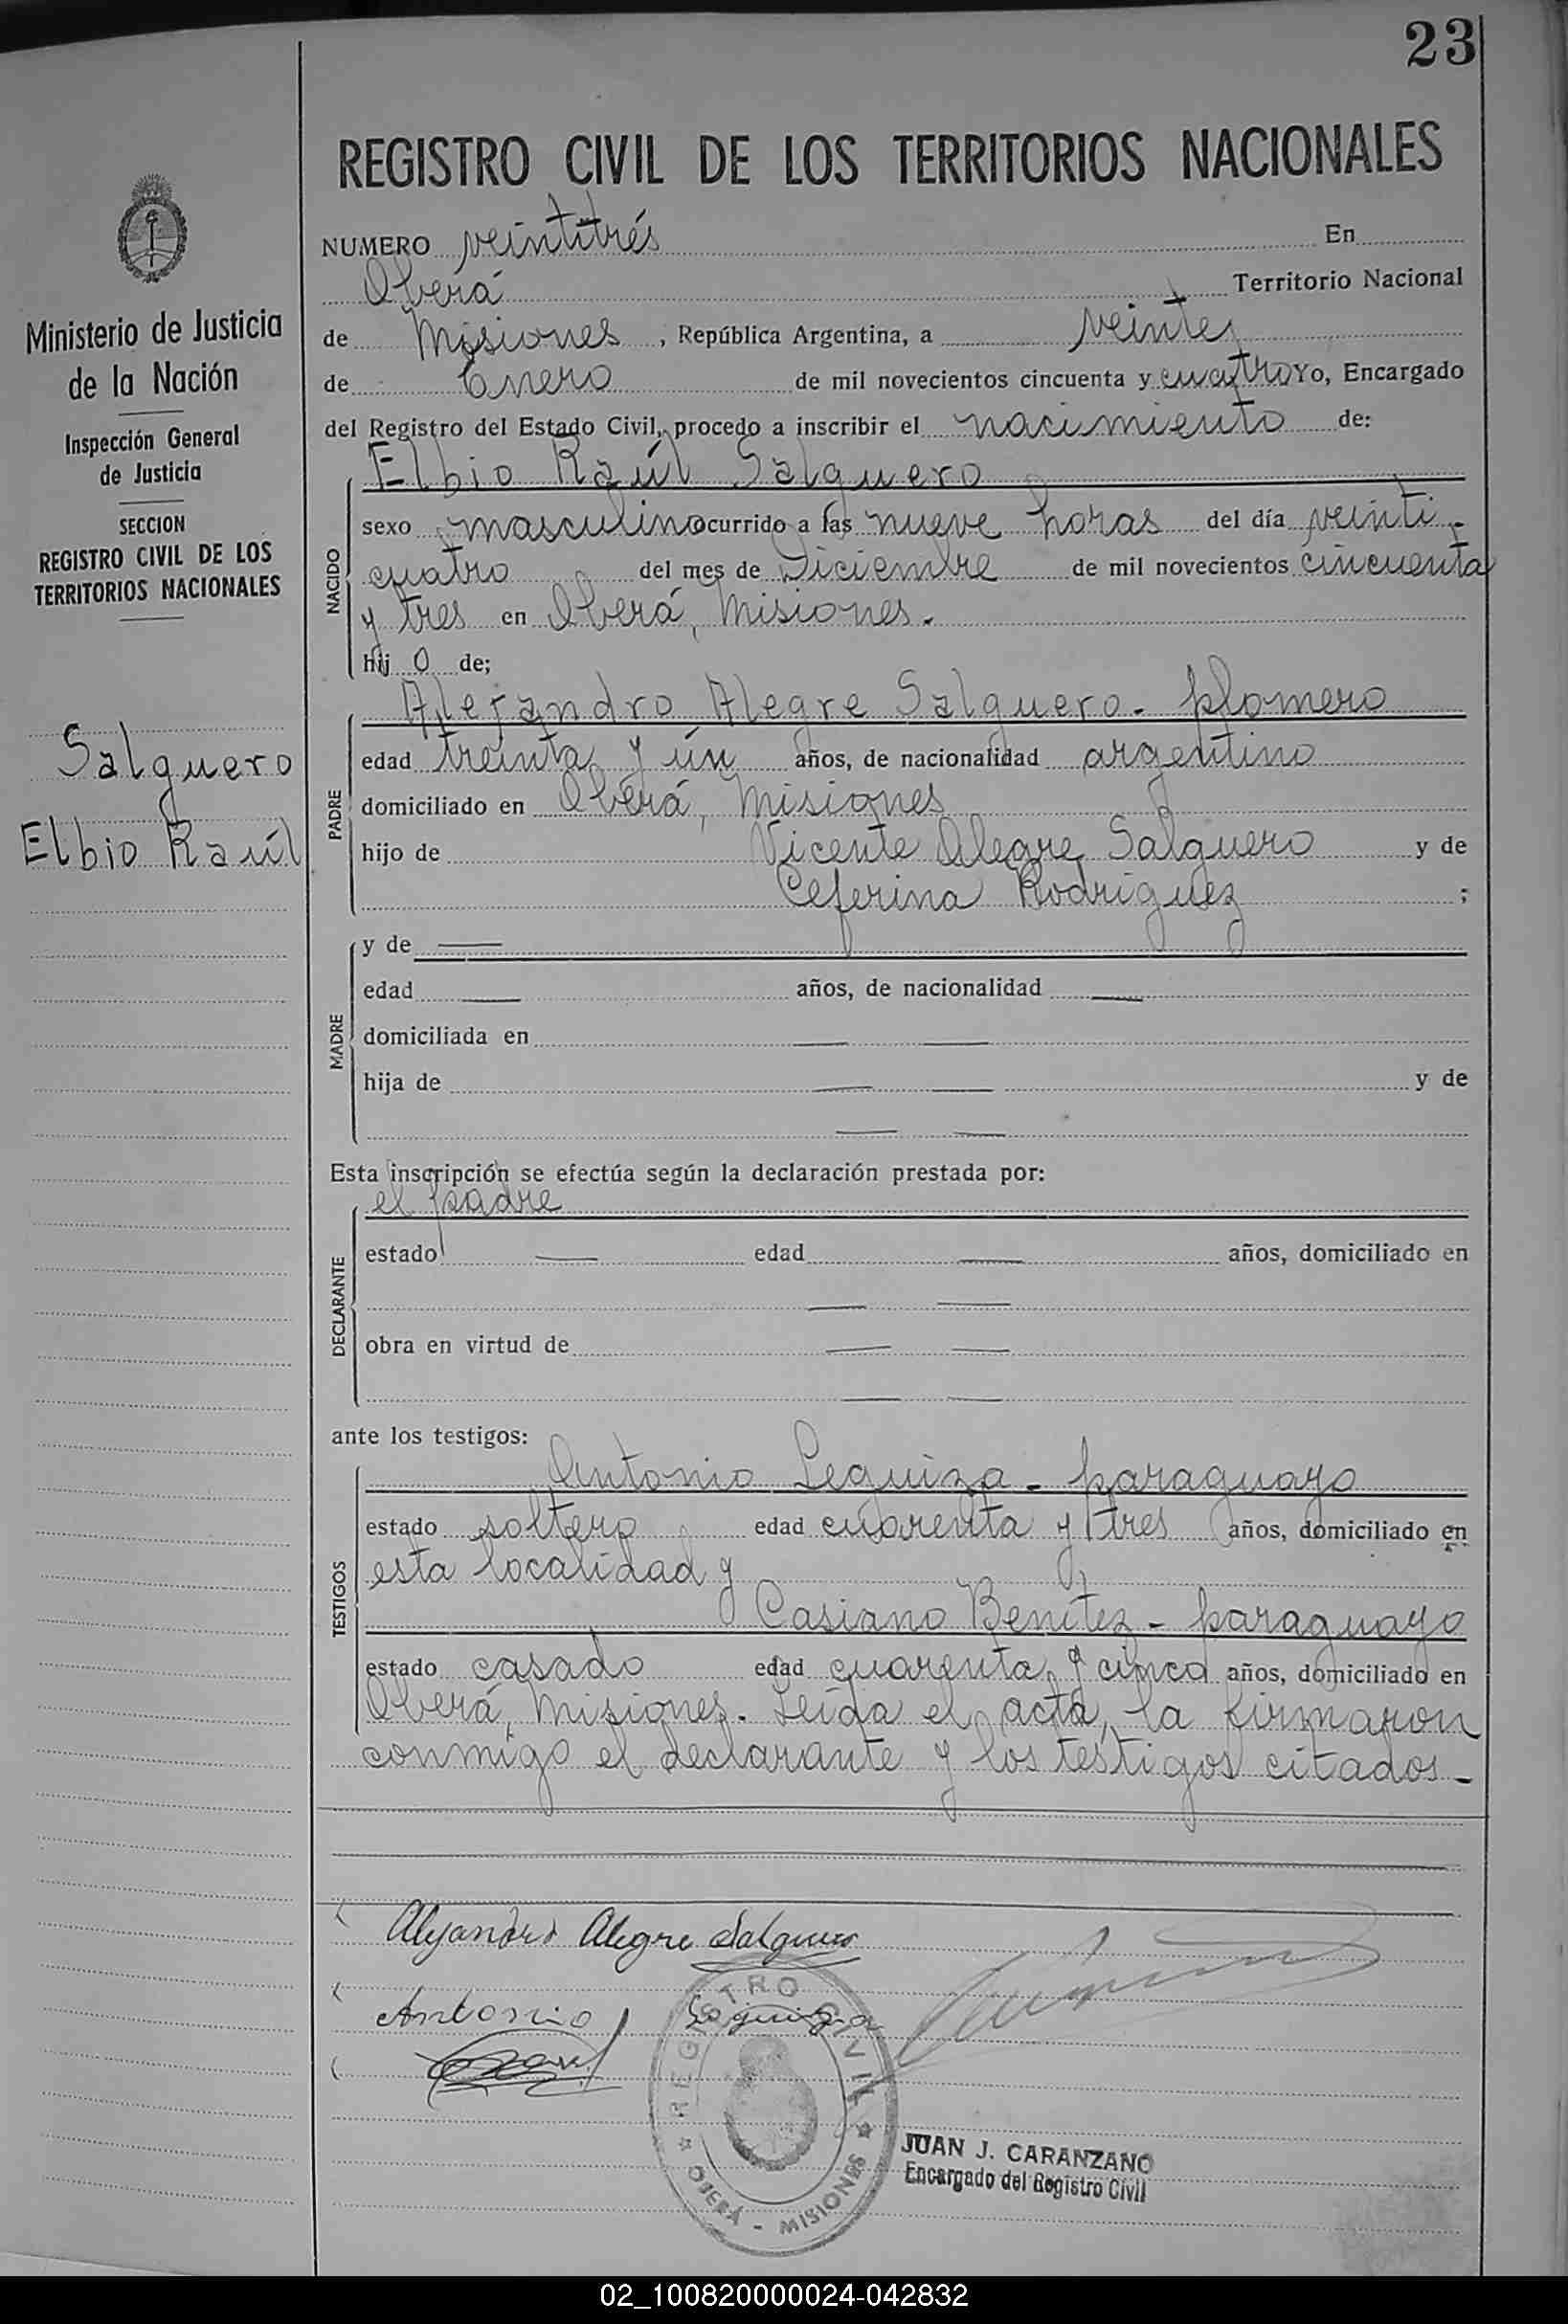 23
REGISTRO CIVIL DE LOS TERRITORIOS NACIONALES
Ministerio de Justicia
de la Nación
Inspección General
de Justicia
SECCION
REGISTRO CIVIL DE LOS
TERRITORIOS NACIONALES
Salguero
Elbio Raúl
NUMERO veintitrés En
Oberá Territorio Nacional
de Misiones, República Argentina, a veinte
de Enero de mil novecientos cincuenta y cuatro Yo, Encargado
del Registro del Estado Civil, procedo a inscribir el nacimiento de:
NACIDO
Elbio Raúl Salguero
sexo masculino ocurrido a las nueve horas del día veinti-
cuatro del mes de Diciembre de mil novecientos cincuenta
y tres en Oberá, Misiones.
hij o de;
PADRE
Alejandro Alegre Salguero - plomero
edad treinta y ún años, de nacionalidad argentino
domiciliado en Oberá, Misiones
hijo de Vicente Alegre Salguero y de
Ceferina Rodriguez ;
MADRE
y de —
edad — años, de nacionalidad —
domiciliada en — —
hija de — — y de
— —
Esta inscripción se efectúa según la declaración prestada por:
DECLARANTE
el padre
estado — edad — años, domiciliado en
— —
obra en virtud de — —
— —
ante los testigos:
TESTIGOS
Antonio Leguiza - paraguayo
estado soltero edad cuarenta y tres años, domiciliado en
esta localidad y
Casiano Benitez - paraguayo
estado casado edad cuarenta y cinco años, domiciliado en
Oberá, Misiones. Leída el acta, la firmaron
conmigo el declarante y los testigos citados -
Alejandro Alegre Salguero
Antonio Leguiza
REGISTRO CIVIL
OBERÁ - MISIONES
JUAN J. CARANZANO
Encargado del Registro Civil
02_100820000024-042832